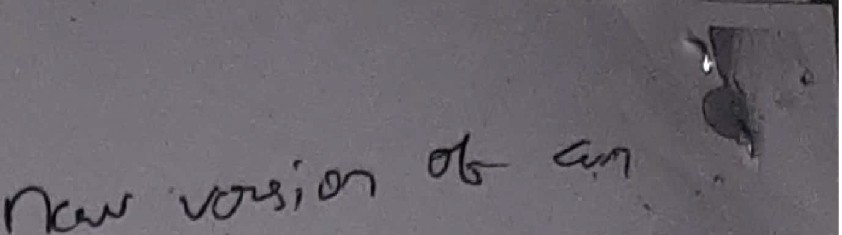 new version of an